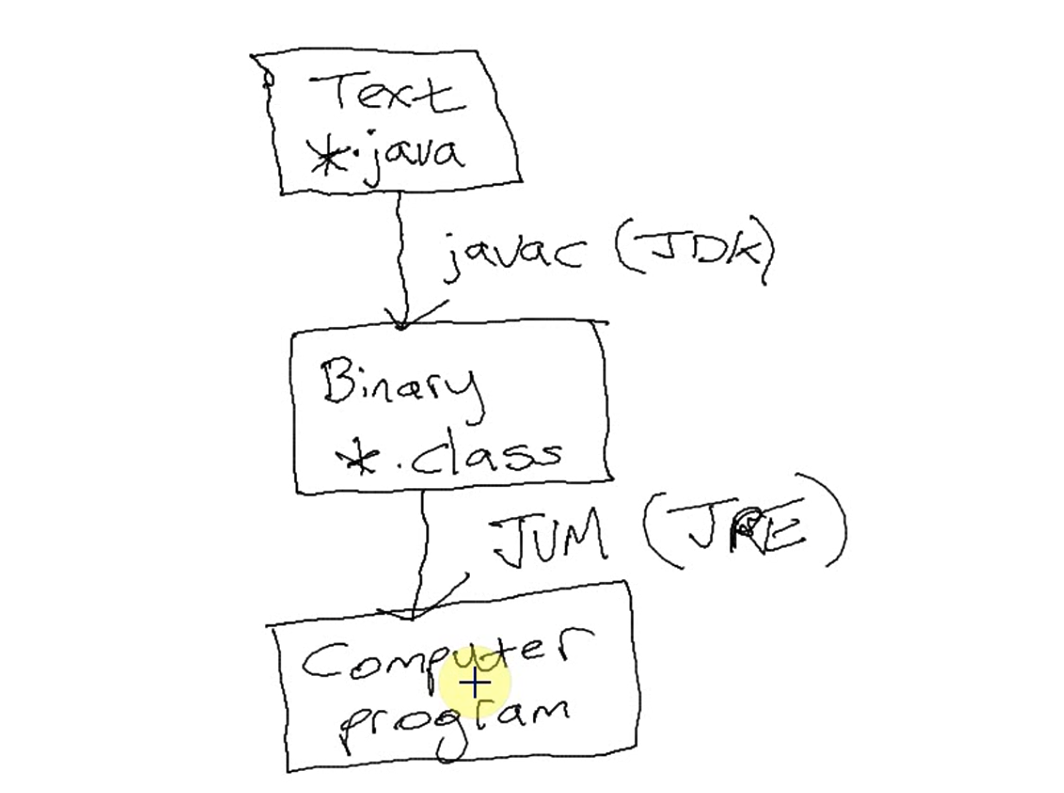 Text
*.java
javac (JDK)
Binary
*.class
JVM (JRE)
Computer
program